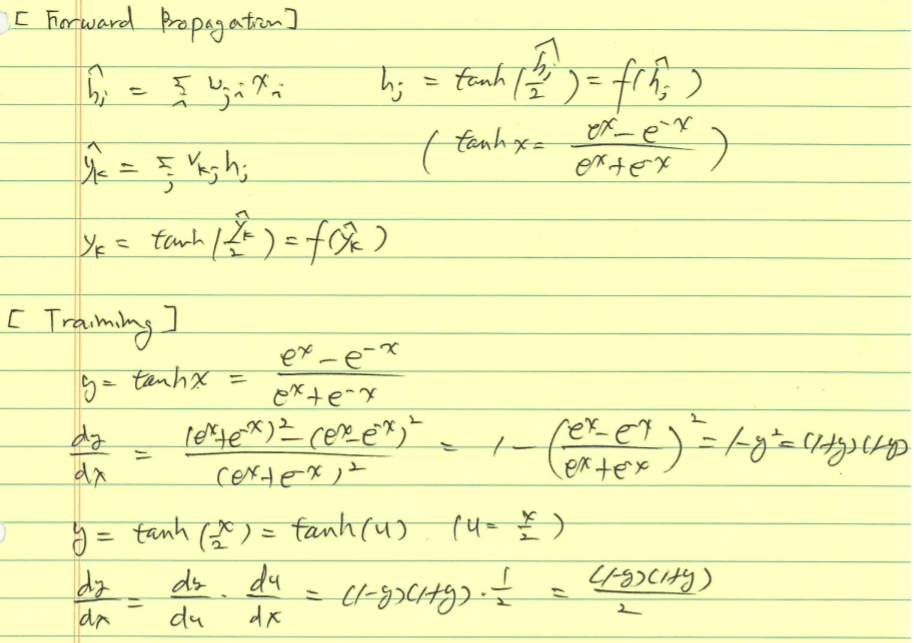 [ Forward Propagation ]
ĥⱼ = Σᵢ wⱼᵢ xᵢ    hⱼ = tanh(ĥⱼ/2) = f(ĥⱼ)
ŷₖ = Σⱼ vₖⱼ hⱼ    ( tanh x = (eˣ − e⁻ˣ)/(eˣ + e⁻ˣ) )
yₖ = tanh(ŷₖ/2) = f(ŷₖ)
[ Training ]
y = tanh x = (eˣ − e⁻ˣ)/(eˣ + e⁻ˣ)
dy/dx = ((eˣ + e⁻ˣ)² − (eˣ − e⁻ˣ)²)/(eˣ + e⁻ˣ)² = 1 − ((eˣ − e⁻ˣ)/(eˣ + e⁻ˣ))² = 1 − y² = (1+y)(1−y)
y = tanh(x/2) = tanh(u)    (u = x/2)
dy/dx = dy/du · du/dx = (1−y)(1+y) · 1/2 = (1−y)(1+y)/2